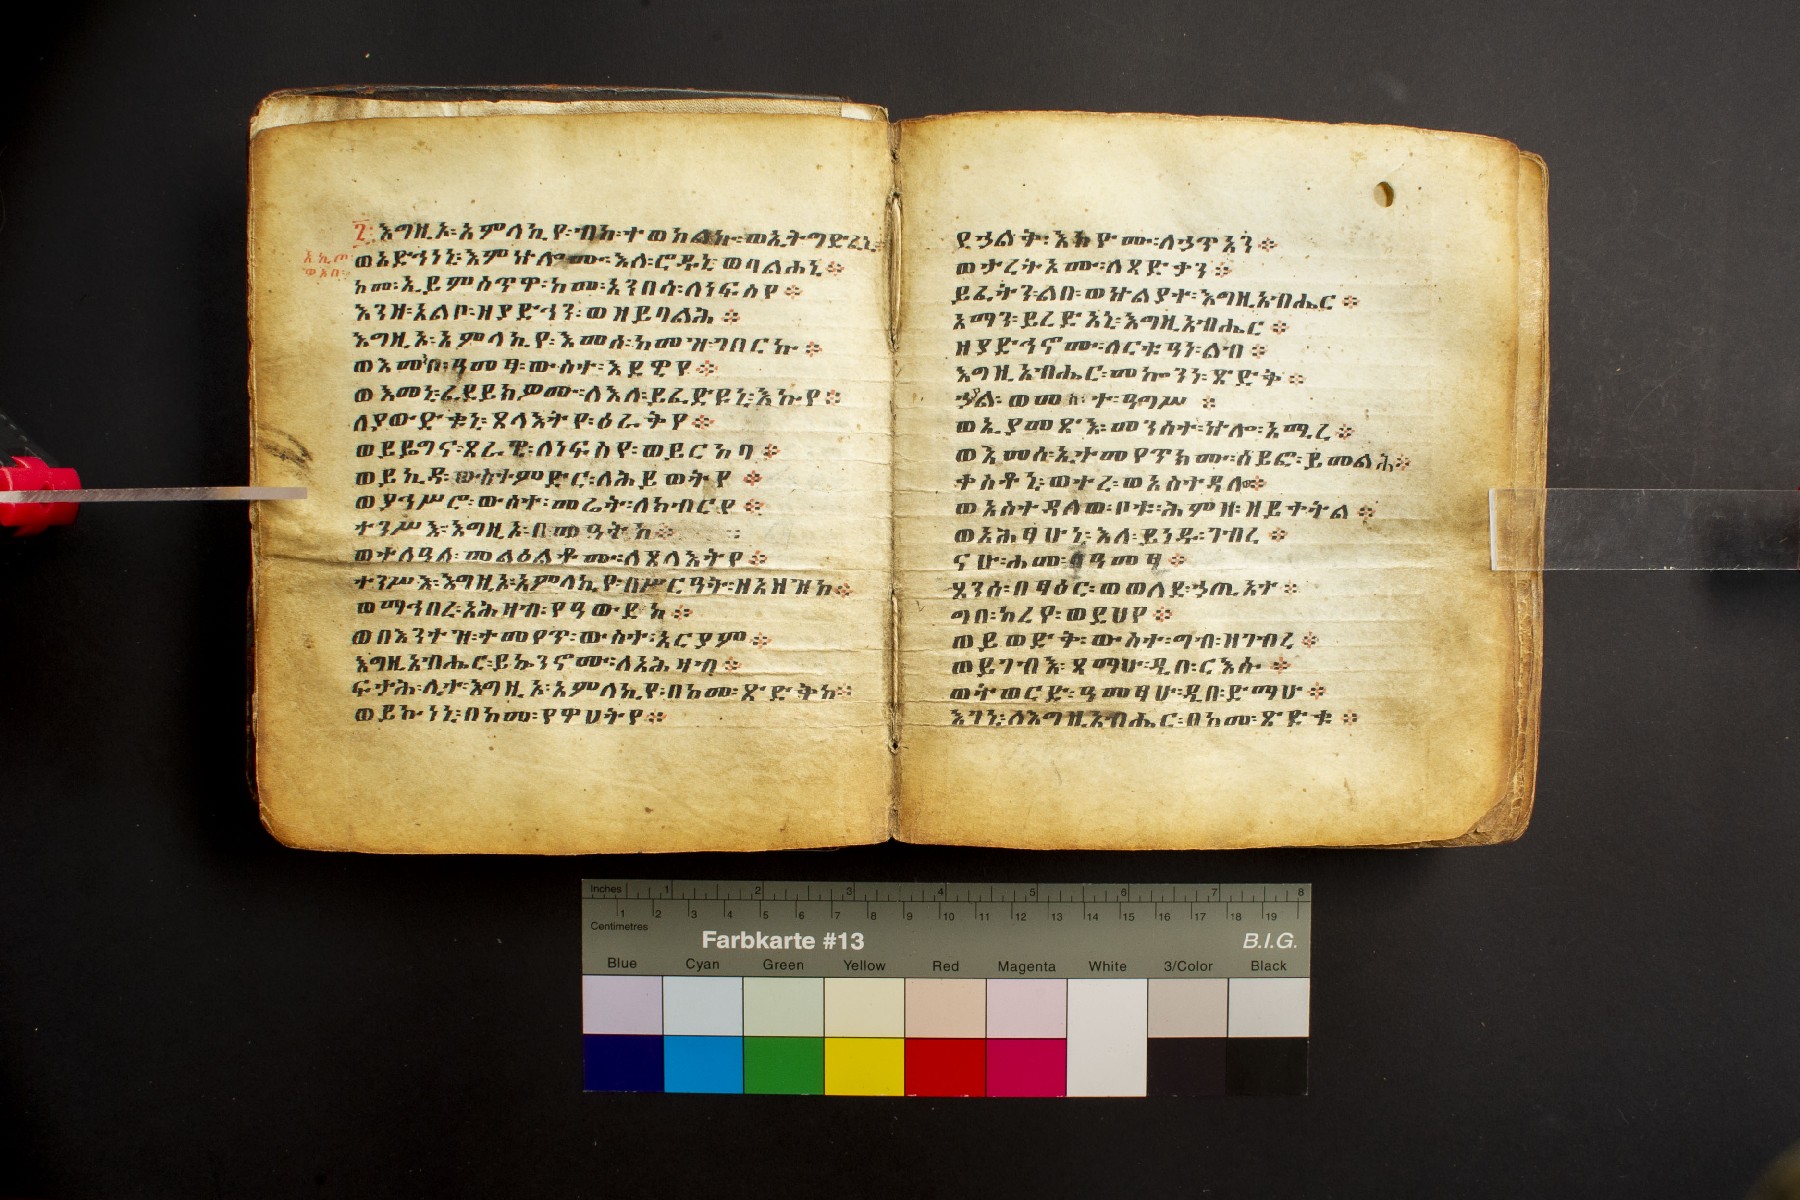 ፯ እግዚኦ፡ አምላኪየ፡ ብከ፡ ተወከልኩ፡ ወኢትግድፈኒ፡
ወአድኅነኒ፡ እምኵሎሙ፡ እለ፡ ሮዱኒ ወባልሐኒ፨
ከመ፡ ኢይምሰጥዋ፡ ከመ፡ አንበሳ፡ ለነፍስየ፨
እንዘ፡ አልቦ፡ ዘያድኅን፡ ወዘይባልሕ፨
እግዚኦ፡ አምላኪየ፡ እመሰ፡ ከመዝ፡ ገበርኩ፨
ወእመቦ፡ ዓመፃ፡ ውስተ፡ እደዊየ፨
ወእመኒ፡ ፈደይክዎሙ፡ ለእለ፡ ይፈድዩኒ፡ እኩየ፨
ለያውድቁኒ፡ ጸላእትየ፡ ዕራትየ፨
ወይዴግና፡ ጸራዊ፡ ለነፍስየ፡ ወይርከባ፨
ወይኪዳ፡ ውስተ ምድር፡ ለሕይወትየ፨
ወያኅሥሮ፡ ውስተ፡ መሬት፡ ለክብርየ፨
ተንሥእ፡ እግዚኦ፡ በመዓትከ፨
ወተለዓለ፡ መልዕልቶሙ፡ ለጸላእትየ፨
ተንሥእ፡ እግዚኦ፡ አምላኪየ፡ በሥርዓት፡ ዘአዘዝከ፨
ወማኅበረ፡ አሕዛብ፡ የዓውደከ፨
ወበእንተዝ፡ ተመየጥ፡ ውስተ፡ አርያም፨
እግዚአብሔር፡ ይኴንኖሙ፡ ለአሕዛብ፨
ፍታሕ፡ ሊተ፡ እግዚኦ፡ አምላኪየ፡ በከመ፡ ጽድቅከ፨
ወይኩነኒ፡ በከመ፡ የዋሀትየ፨
የኃልቅ፡ እከዮሙ፡ ለኃጥአን፨
ወታረትዖሙ፡ ለጻድቃን፨
ይፈትን፡ ልበ፡ ወኵልያተ፡ እግዚአብሔር፨
አማን፡ ይረድአኒ፡ እግዚአብሔር፨
ዘያድኅኖሙ፡ ለርቱዓነ፡ ልብ፨
እግዚአብሔር፡ መኰንነ፡ ጽድቅ፨
ኃያል፡ ወመስተዓግሥ፨
ወኢያመጽእ፡ መንሱተ፡ ኵሎ፡ አሚረ፨
ወእመሰ፡ ኢተመየጥክሙ፡ ሰይፎ፡ ይመልሕ፨
ቀስቶኒ፡ ወተረ፡ ወአስተዳለወ፨
ወአስተዳለወ፡ ቦቱ፡ ሕምዘ፡ ዘይቀትል፨
ወአሕፃሁኒ፡ እለ፡ ይነዱ፡ ገብረ፨
ናሁ፡ ሐመ፡ በዓመፃ፨
ፀንሰ፡ በፃዕር፡ ወወለደ፡ ኃጢአተ፨
ግበ፡ ከረየ፡ ወደሀየ፨
ወይወድቅ፡ ውስተ፡ ግብ፡ ዘገብረ፨
ወይገብእ፡ ጻማሁ፡ ዲበ፡ ርእሱ፨
ወትወርድ፡ ዓመፃሁ፡ ዲበ፡ ድማሁ፨
እገኒ፡ ለእግዚአብሔር፡ በከመ፡ ጽድቁ፨